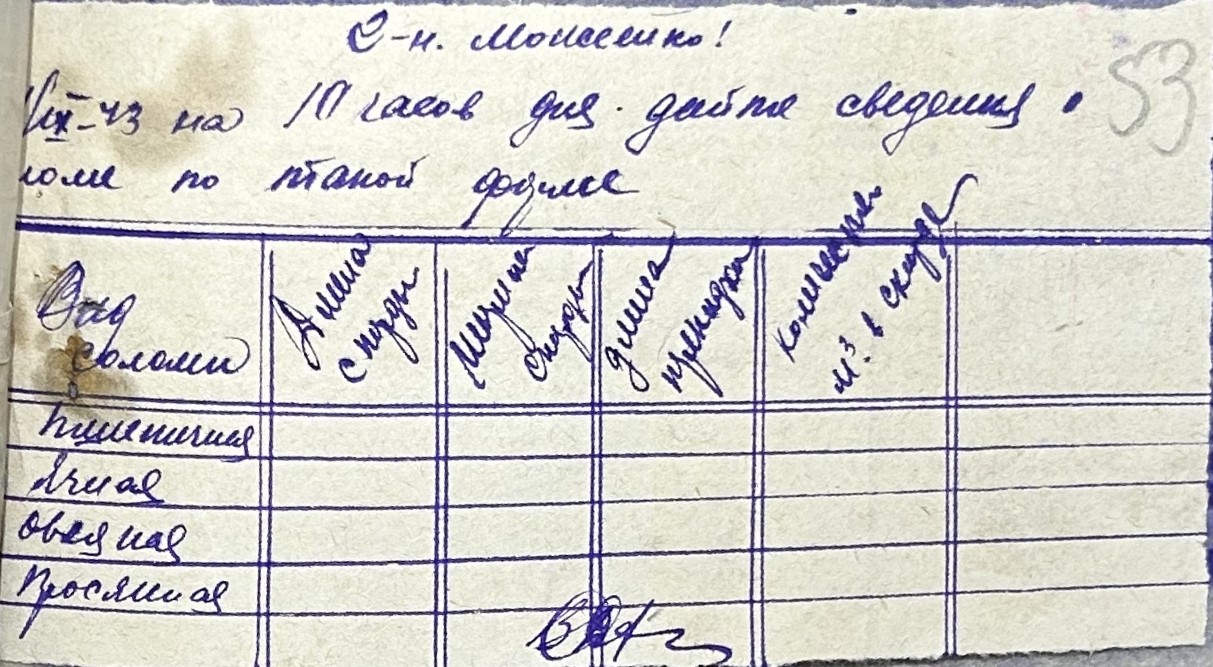 53
на 10 часов дня дайте сведения о
по такой форме
Вид соломы
Длина скирды
Ширина скирды
длина перекидки
количество м³ в скирде
Пшеничная
Ячная
Овсяная
Просяная